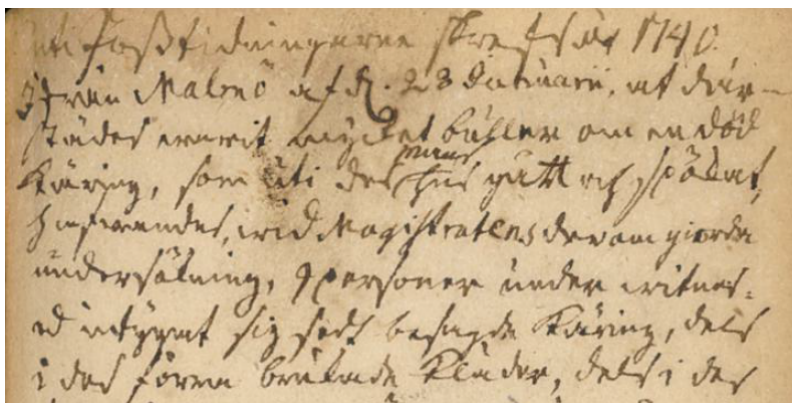 uti Posttidningarne skrefs år 1740.
ifrån Malmö af d. 23 Januari, at där-
städes warit mycket buller om en död
Käring, som uti des mans hus gått och spökat,
hwarwid Magistratens derom giorda
undersökning, 9 personer under witnes-
ed intygat sig sedt besagde Käring, dels
i des förra brukade Kläder, dels i des